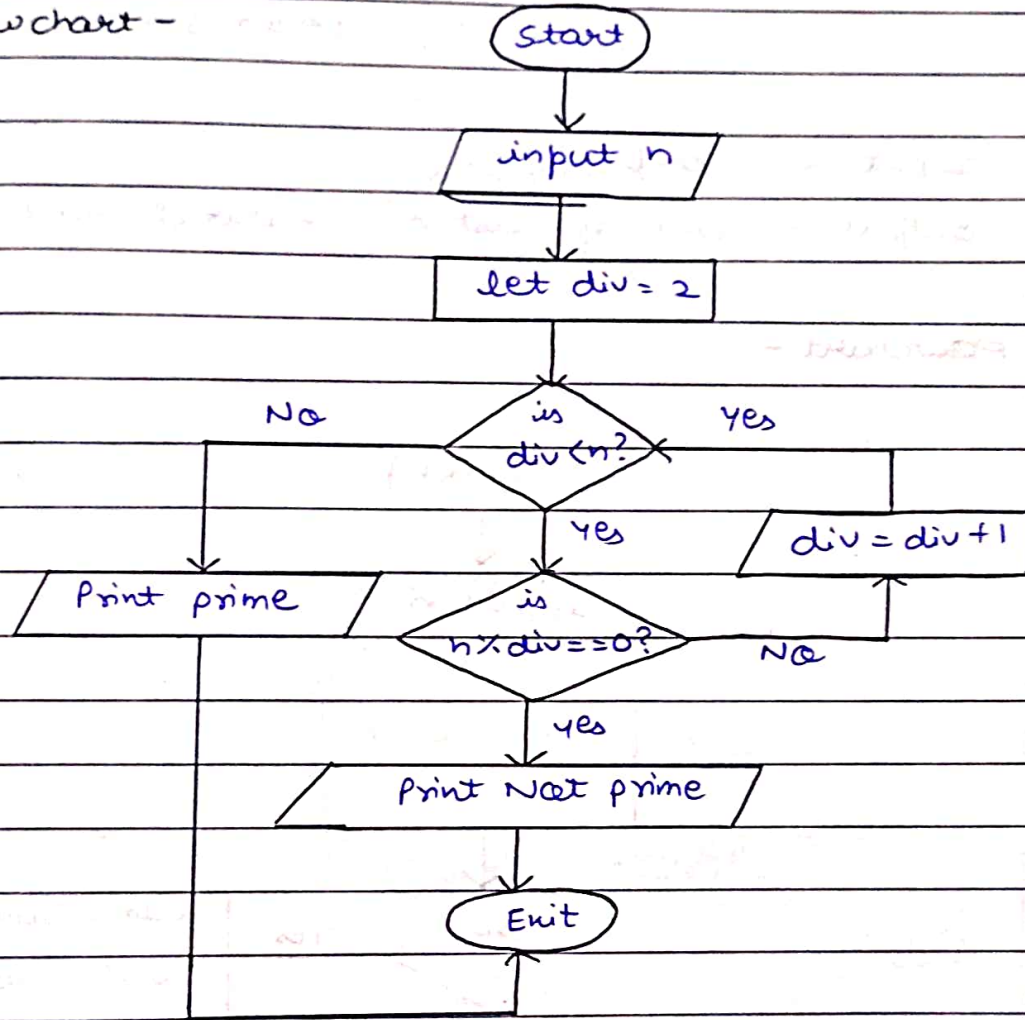 wchart -
Start
input n
let div = 2
No
is
div < n?
yes
yes
div = div + 1
Print prime
is
n % div == 0?
No
yes
Print Not prime
Exit